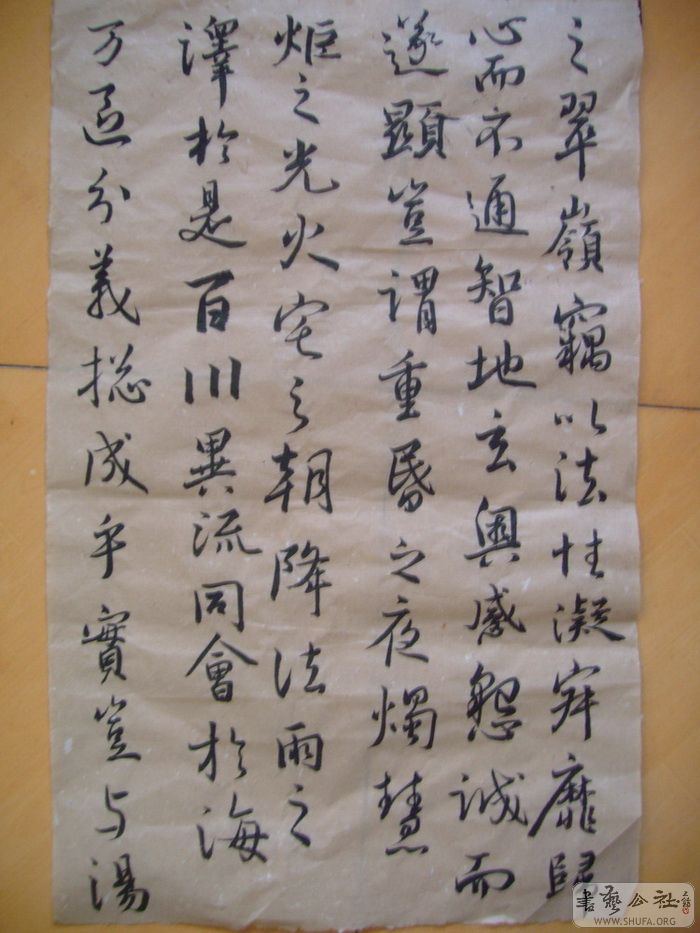 之翠嶺竊以法性凝寂靡歸
心而不通智地玄奧感懇誠而
遂顯豈謂重昏之夜燭慧
炬之光火宅之朝降法雨之
澤於是百川異流同會於海
万區分義揔成乎實豈与湯
書藝公社
WWW.SHUFA.ORG